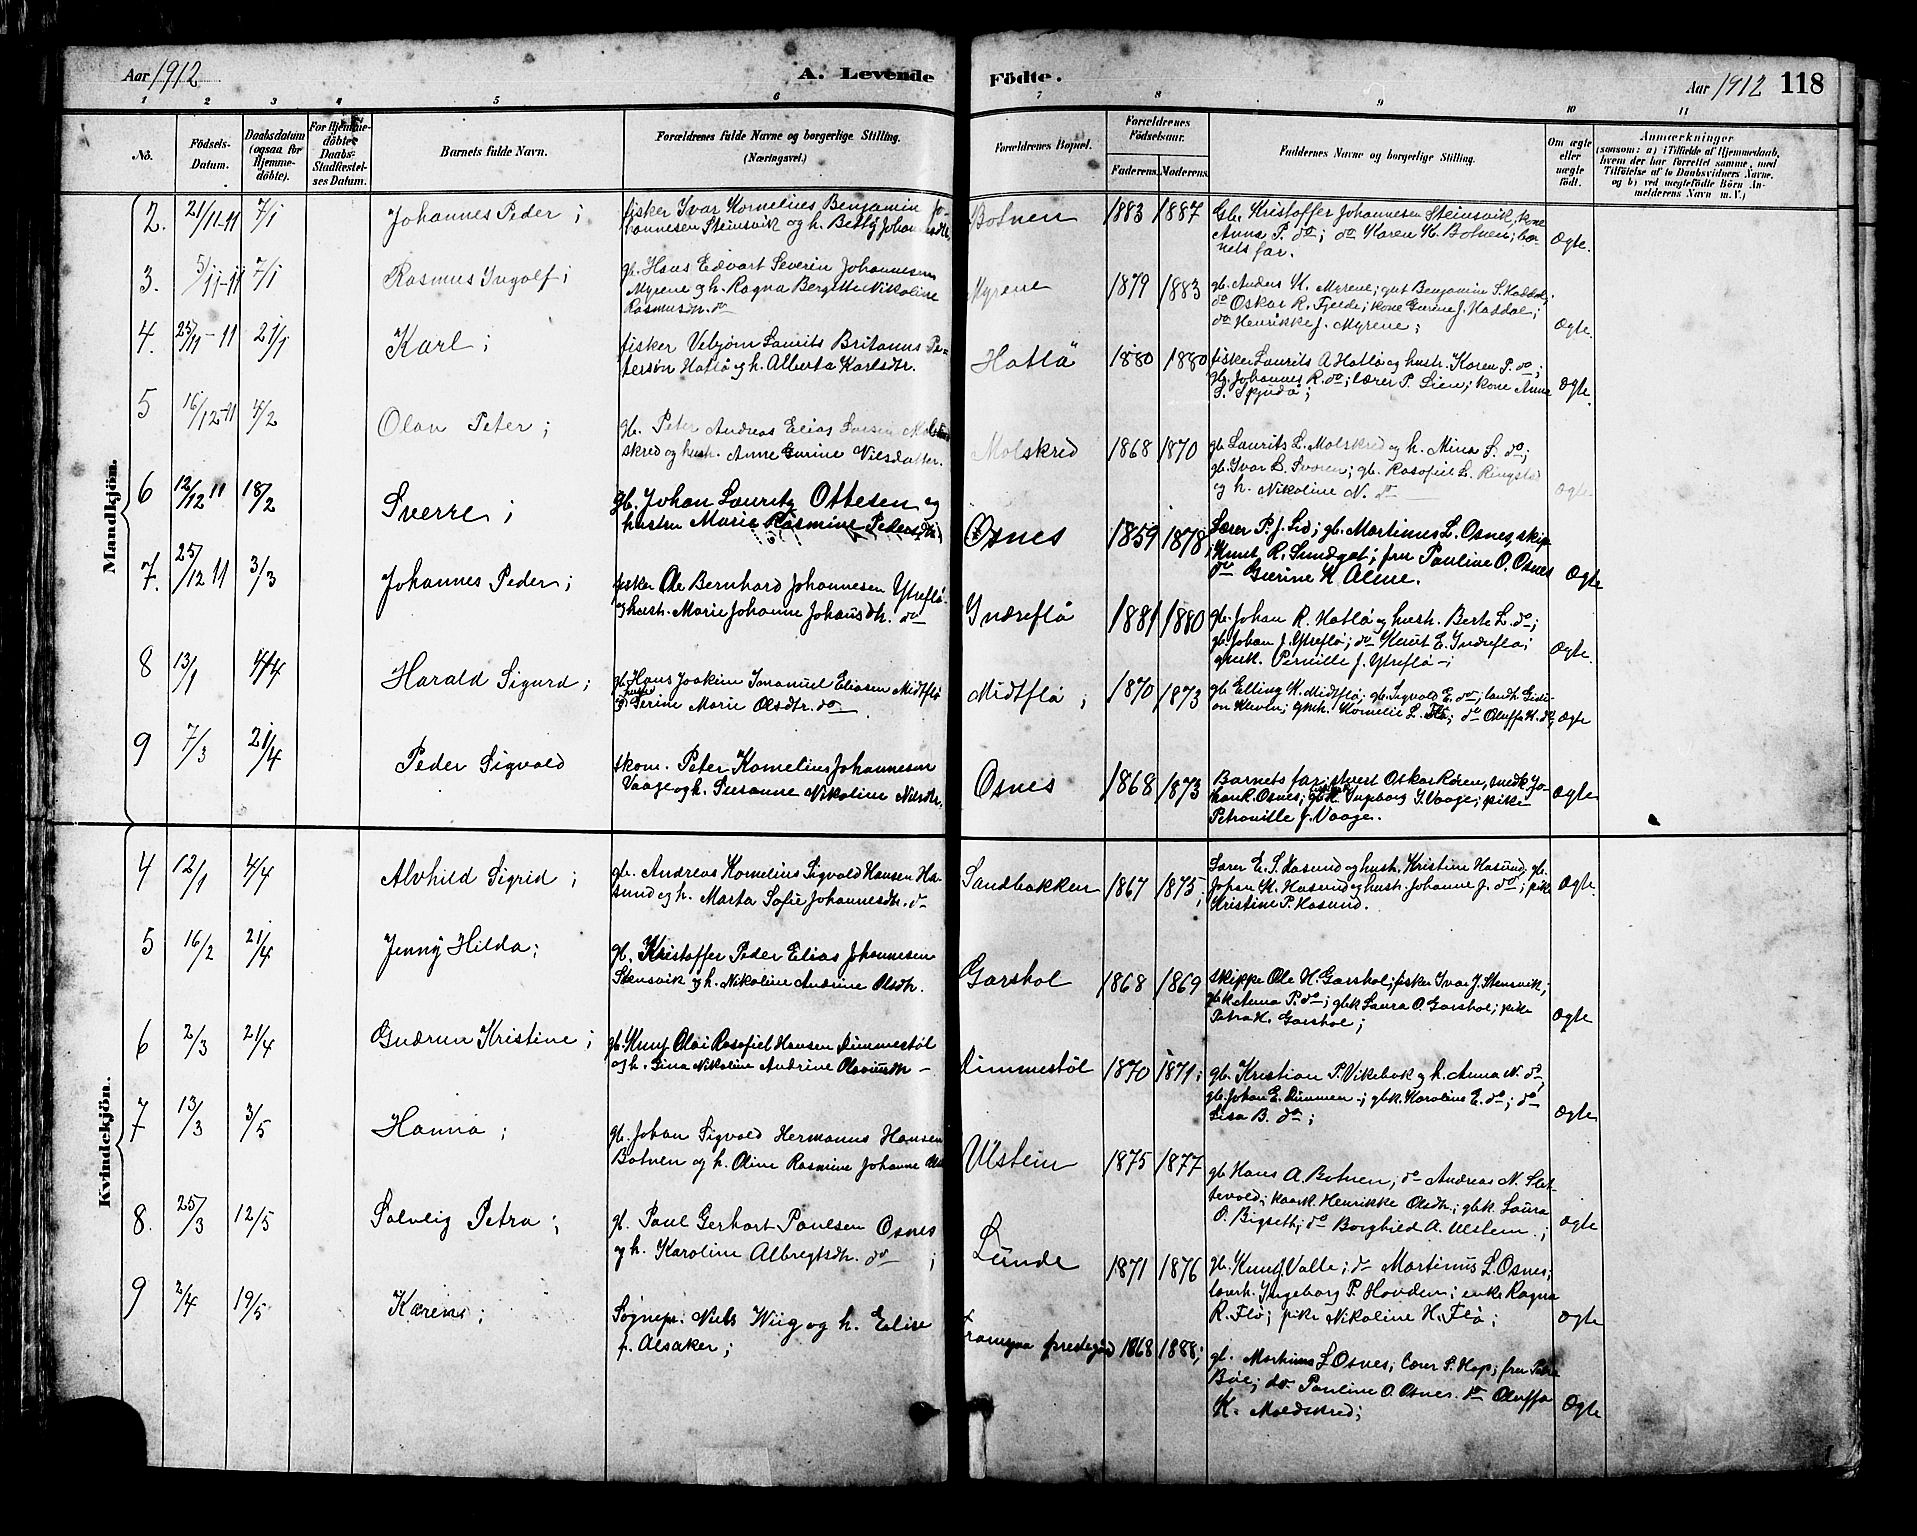 Aar 1912
A. Levende Födte.
Aar 1912 118
1 2 3 4 5 6 7 8 9 10 11
No.
Födsels-Datum.
Daabsdatum (ogsaa for Hjemmedöbte).
For Hjemmedöbte: Daabs-Stadfæstelses Datum.
Barnets fulde Navn.
Forældrenes fulde Navne og borgerlige Stilling.
(Næringsvei.)
Forældrenes Bopæl.
Forældrenes Födselsaar.
Faderens. Moderens.
Faddernes Navne og borgerlige Stilling.
Om ægte eller uægte födt.
Anmærkninger
(saasom: a) i Tilfælde af Hjemmedaab, hvem der har forrettet samme, med Tilföielse af to Daabsvidners Navne, og b) ved uægtefödte Börn Anmelderens Navn m. V.)
Mandkjön.
2. 21/11-11 7/1 Johannes Peder;
fisker Ivar Kornelius Benjamin Jo-
hannesen Steinsvik og h. Betty Johannesdtr.
Botnen 1883 1887
Gb. Kristoffer Johannesen Steinsvik, kone
Anna P. do; do Karen K. Botnen; bar-
nets far.
Ægte.
3. 5/11-11 7/1 Rasmus Ingolf;
gb. Hans Edvart Severin Johannesen
Myrene og h. Ragna Bergitte Nikoline
Rasmusdtr. do
Myrene 1879 1883
gb. Anders K. Myrene; gut Benjamin S. Haddal;
do Oskar R. Fjelde; kone Gurine J. Haddal;
do Henrikke J. Myrene;
Ægte.
4. 25/11-11 21/1 Karl;
fisker Vebjørn Laurits Britanus Pe-
tersøn Hatlø og h. Alberta Karlsdtr.
Hatlø 1880 1880
fisker Laurits A Hatlø og hustr. Karen P. do;
gb. Johannes R. do; lærer P. Lien; kone Anna
Ægte.
5 16/12-11 4/2 Olan Peter;
gb. Peter Andreas Elias Larsen
skred og hustr. Anne Gurine Nilsdatter.
Molskred 1868 1870
gb. Laurits L. Molskred og h. Mina S. do;
gb. Ivar L. Svoren; gb. Rasofiel L. Ringstad
og h. Nikoline N. do
Ægte
6 12/12 11 18/2 Sverre;
gb. Johan Lauritz Ottesen og
hustru Marie Rasmine Pedersdtr.
Osnes 1859 1878
Lærer P. J. Lid; gb. Martinus L. Osnes, skip.
Knut R. Sundgot; fru Pauline O. Osnes
do Gurine K. Alme.
Ægte
7. 25/12 11 3/3 Johannes Peder;
fisker Ole Bernhard Johannesen Ytreflø
og hustr. Marie Johanne Johansdtr. do
Indreflø 1881 1880
gb. Johan R. Hatlø og hustr. Berte L. do;
gb. Johan J. Ytreflø; do Knut E. Indreflø;
Pernille J. Ytreflø;
Ægte.
8 13/1 4/4 Harald Sigurd;
gb. Hans Joakim Imanuel Eliasen Midtflø
Gerine Marie Olsdtr. do
Midtflø; 1870 1873
gb. Elling K. Midtflø; gb. Sigvald E. do; landh. Gidi-
on Kleven; Kornelie L. Flø; do Oluffa H. do
Ægte
9 7/3 21/4 Peder Sigvald
skom. Peter Kornelius Johannesen
Vaage og h. Susanne Nikoline Nilsdtr.
Osnes 1868 1873
Barnets far; styrest Oskar Røren, smed Jo-
han R. Osnes; Ingborg I. Vaage; pike
Petronille J. Vaage.
Ægte
Kvindekjön.
4 12/1 4/4 Alvhild Sigrid;
gb. Andreas Kornelius Sigvald Hansen Ha-
sund og h. Marta Sofie Johannesdtr. do
Sandbakken 1867 1875;
Lærer E. S. Hasund og hustr. Kristine Hasund, gb.
Johan K. Hasund og hustr. Johanne J. do; pike
Kristine P. Hasund.
Ægte.
5 16/2 21/4 Jenny Hilda;
gb. Kristoffer Peder Elias Johannesen
Stensvik og h. Nikoline Andrine Olsdtr.
Garshol 1868 1869
skipper Ole H. Garshol; fisker Ivar J. Stensvik;
gbk. Anna P. do; gbk Laura O. Garshol; pike
Petra H. Garshol;
Ægte
6 2/3 21/4 Gudrun Kristine;
gb. Knut Olai Rasofiel Hansen Dimmestøl
og h. Gina Nikoline Andrine Olavusdtr
Dimmestøl 1870 1871;
gb. Kristian P. Vikebak og h. Anna N. do;
gb. Johan E. Dimmen; gbk. Karoline E. do; do
Lisa B. do;
Ægte
7 13/3 3/5 Hanna;
gb. Johan Sigvald Hermanus Hansen
Botnen og h. Oline Rasmine Johanne
Ulstein 1875 1877
gb. Hans A. Botnen; do Andreas N. Slet-
tevold; kaark. Henrikke Olsdtr.; gbk. Laura
O. Bigset; do Borghild A. Ulstein.;
Ægte
8. 25/3 12/5 Solveig Petra;
gb. Paul Gerhart Paulsen Osnes
og h. Karoline Albregtsdtr. do;
Lunde 1871 1876
gb. Knut J. Valle; do Martinus L. Osnes;
lærerh. Ingeborg P. Hovden; enke Ragna
R. Flø; pike Nikoline H. Flø;
Ægte
9 2/4 19/5 Karens;
Sognepr. Niels Wiig og h. Elise
f. Alsaker;
prestegård 1868 1888;
gb. Martinus L Osnes; lærer S. Hop; fru Petra
Bøe; do. Pauline O. Osnes. do Oluffa
K. Moldskred;
Ægte